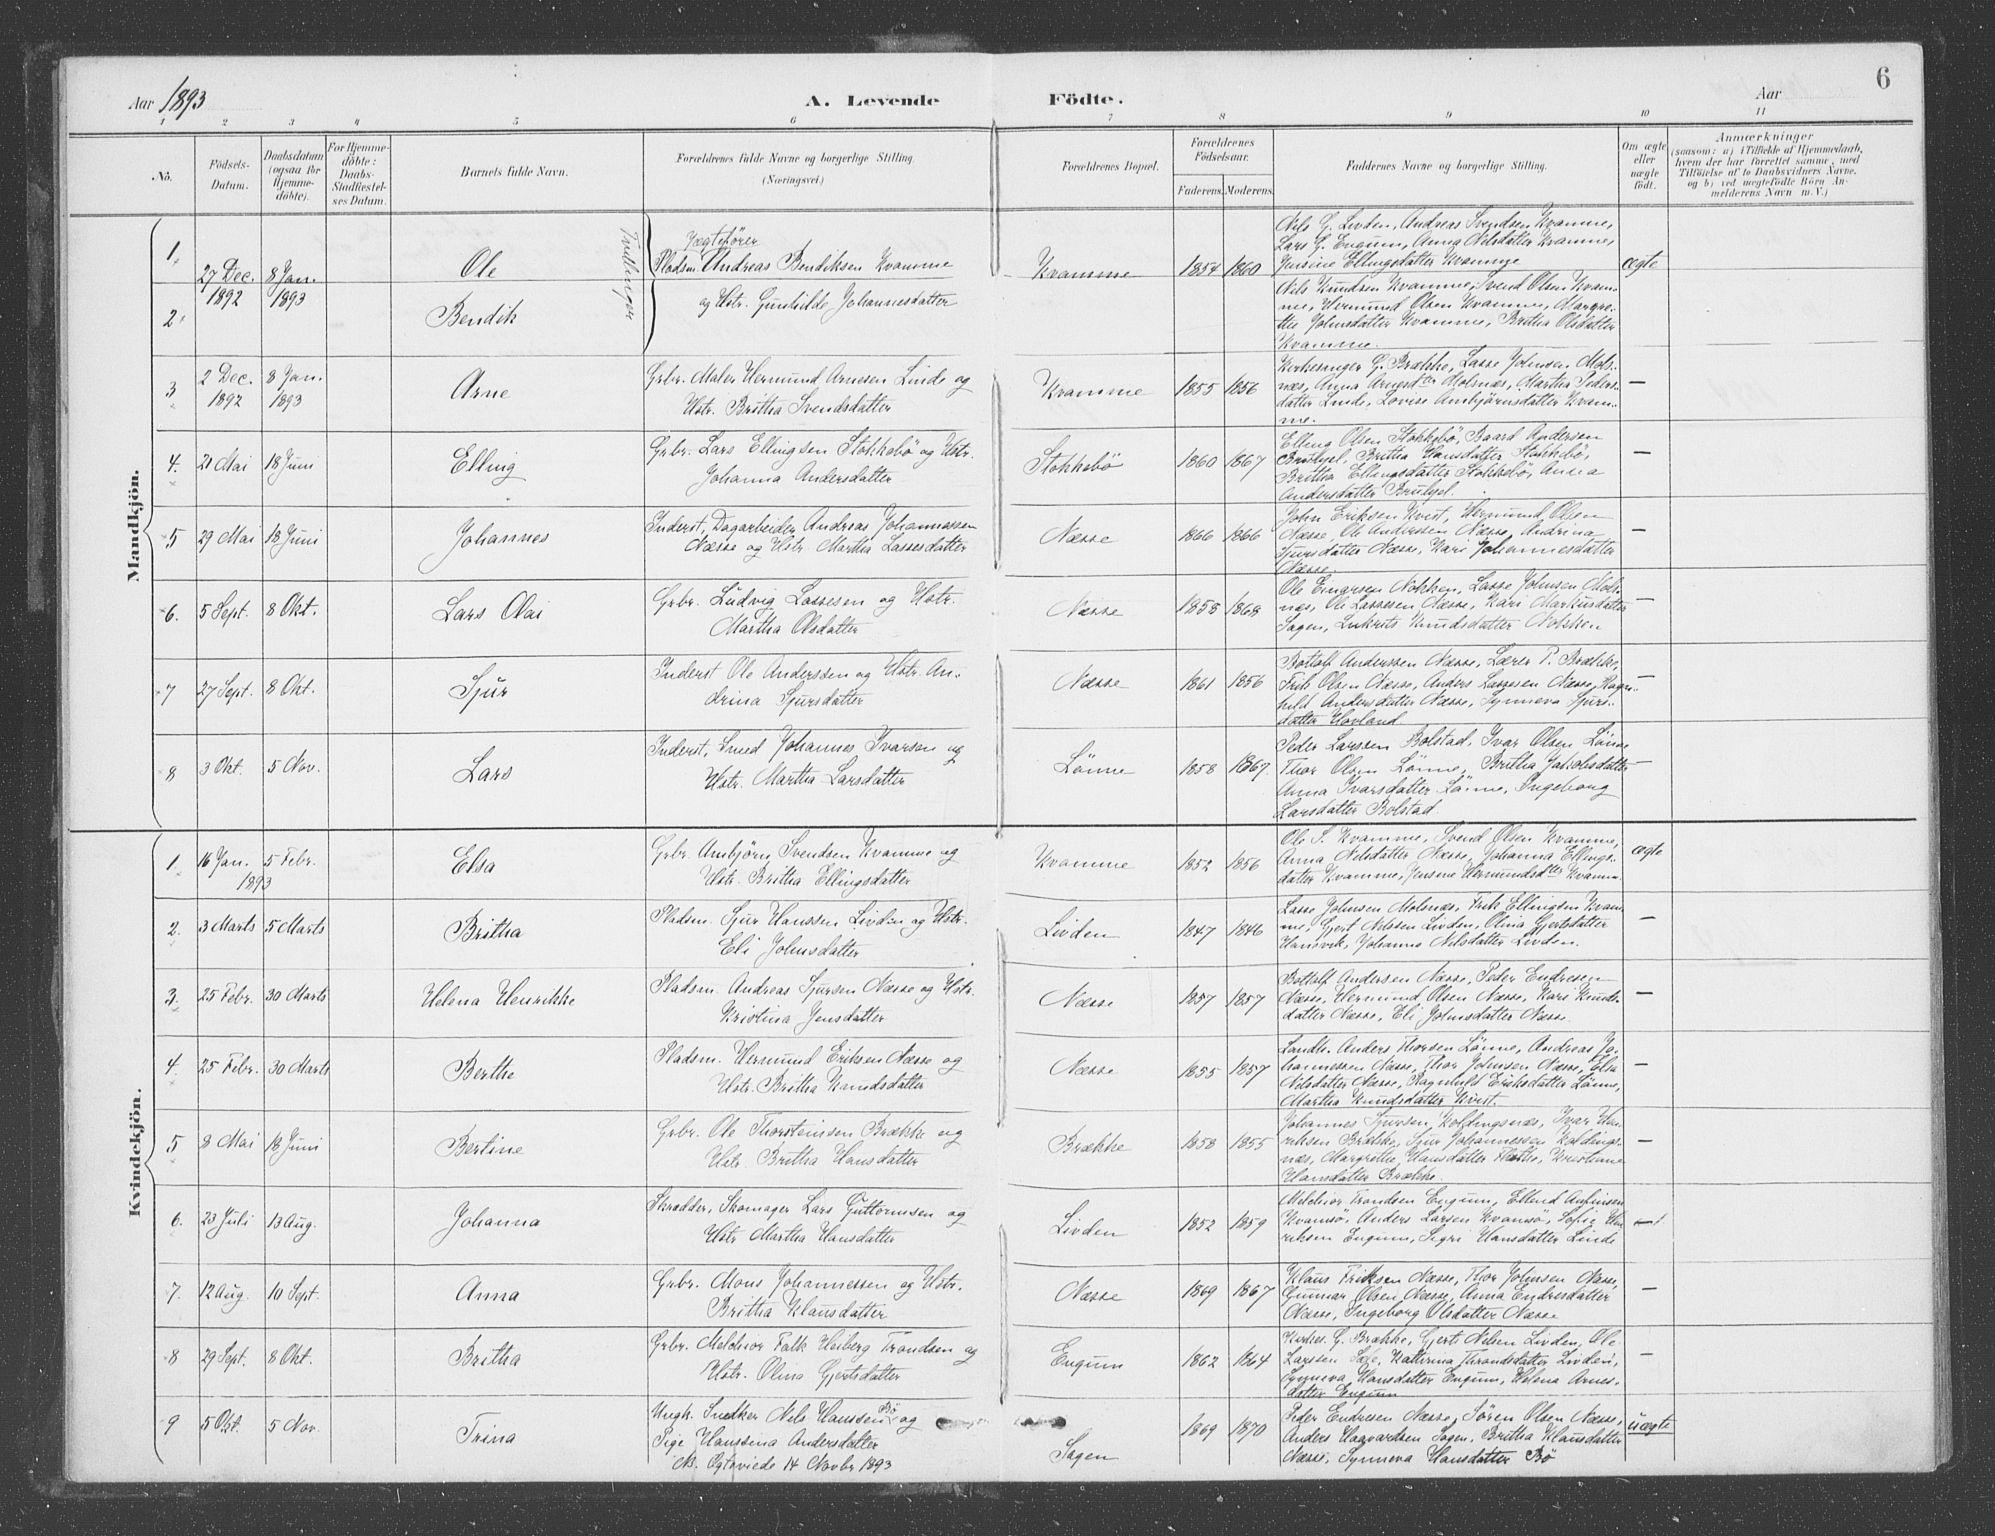 6
Aar 1893
A. Levende Födte.
Aar
1 2 3 4 5 6 7 8 9 10 11
No.
Födsels-
Datum.
Daabsdatum
(ogsaa for
Hjemme-
döbte).
For Hjemme-
döbte:
Daabs-
Stadfæstel-
ses Datum.
Barnets fulde Navn.
Forældrenes fulde Navne og borgerlige Stilling.
(Næringsvei.)
Forældrenes Bopæl.
Forældrenes
Födselsaar.
Faderens. Moderens.
Faddernes Navne og borgerlige Stilling.
Om ægte
eller
uægte
födt.
Anmærkninger
(saasom: a) i Tilfælde af Hjemmedaab,
hvem der har forrettet samme, med
Tilföielse af to Daabsvidners Navne,
og b) ved uægtefödte Börn An-
melderens Navn m.V.)
Mandkjön.
1. 2.
27 Dec. 8 Jan.
1892 1893
Ole
Bendik
Tvillinger
Jægtefører
Pladsm. Andreas Bendiksen Kvamme
og Hstr. Gunhilde Johannesdatter
Kvamme 1854 1860
Nils G. Livden, Andreas Svendsen Kvamme,
Lars G. Engum, Anna Nilsdatter Kvamme,
Jensine Ellingsdatter Kvamme
ægte
Nils Knudsen Kvamme, Svend Olsen Kvam-
me, Hermund Olsen Kvamme, Margre-
the Johnsdatter Kvamme, Britha Olsdatter
Kvamme.
3 2 Dec. 8 Jan.
1892 1893
Arne
Grbr. Maler Hermund Arnesen Linde og
Hstr. Britha Svendsdatter
Kvamme 1855 1856
Kirkesanger G. Brække, Lasse Johnsen Mols-
næs, Anna Arnesdtter Molnæs, Martha Peders-
datter Linde, Lovise Ambjørnsdatter Kvam-
me.
—
4. 21 Mai 18 Juni Elling
Grbr. Lars Ellingsen Stokkebö og Hstr.
Johanna Andersdatter
Stokkebö 1860 1867
Elling Olsen Stokkebö, Baard Andersen
Bruhjel, Britha Hansdatter Stokkebö,
Britha Ellingsdatter Stokkebö, Anna
Andersdatter Bruhjel.
—
5 29 Mai 18 Juni Johannes
Inderst, Dagarbeider Andreas Johannessen
Næsse og Hstr. Martha Lassesdatter
Næsse 1866 1866
John Eriksen Kvist, Hermund Olsen
Næsse, Ole Anderssen Næsse, Andrina
Sjursdatter Næsse, Kari Johannesdatter
Næsse.
—
6. 5 Sept. 8 Okt. Lars Olai
Grbr. Ludvig Lassesen og Hstr.
Martha Olsdatter
Næsse 1858 1868
Ole Einarsen Nokken, Lasse Johnsen Mols-
næs, Ole Lassesen Næsse, Kari Markusdatter
Sagen, Lukrits Knudsdatter Nokken
—
7 27 Sept. 8 Okt. Sjur
Inderst Ole Anderssen og Hstr. An-
drina Sjursdatter
Næsse 1861 1856
Bottolf Anderssen Næsse, Lærer P. Brække,
Erik Olsen Næsse, Anders Lassesen Næsse, Ragn-
hild Andersdatter Næsse, Synneva Sjurs-
datter Hovland
—
8 3 Okt. 5 Nov. Lars
Inderst, Smed Johannes Ivarsen og
Hstr. Martha Larsdatter
Lönne 1858 1867.
Peder Larssen Bolstad, Ivar Olsen Lönne
Thor Olsen Lönne, Britha Jakobsdatter
Anna Ivarsdatter Lönne, Ingeborg
Larsdatter Bolstad.
—
Kvindekjön.
1. 16 Jan. 5 Febr.
1893
Elsa
Grbr. Ambjörn Svendsen Kvamme og
Hstr. Britha Ellingsdatter
Kvamme 1852 1856
Ole S. Kvamme, Svend Olsen Kvamme,
Anna Nilsdatter Næsse, Johanna Ellings-
datter Kvamme, Jensine Hermundsdtter Kvamme.
ægte
2. 3 Marts 5 Marts Britha
Pladsm. Sjur Hanssen Livden og Hstr.
Eli Johnsdatter
Livden 1847 1846
Lasse Johnsen Molsnæs, Erik Ellingsen Kvam-
me, Gjert Nilssen Livden, Olina Gjertsdatter
Hansvik, Johanna Nilsdatter Livden.
—
3. 25 Febr. 30 Marts Helena Henrikke
Pladsm. Andreas Sjursen Næsse og Hstr.
Kristina Jensdatter
Næsse 1857 1857
Bottolf Andersen Næsse, Peder Endresen
Næsse, Hermund Olsen Næsse, Kari Knuds-
datter Næsse, Eli Johnsdatter Næsse.
—
4. 25 Febr. 30 Marts Berthe
Pladsm. Hermund Eriksen Næsse og
Hstr. Britha Knudsdatter
Næsse 1855 1857
Landh. Anders Thorsen Lönne, Andreas Jo-
hannessen Næsse, Thor Johnsen Næsse, Elsa
Nilsdatter Næsse, Ragnhild Eriksdatter Lönne,
Martha Knudsdatter Kvist.
—
5 8 Mai 18 Juni Bertine
Grbr. Ole Thorsteinsen Brække og
Hstr. Britha Hansdatter
Brække 1858 1855
Johannes Sjursen Koldingsnæs, Ivar Hen-
riksen Brække, Sjur Johannessen Koldings-
næs, Margrethe Hansdatter Thathe, Kristianne
Hansdatter Brække.
—
6. 23 Juli 13 Aug. Johanna
Skrædder, Skomager Lars Guttormsen og
Hstr. Martha Hansdatter
Livden 1852 1859
Melchior Trondsen Engum, Ellend Anfinsen
Kvamsö, Anders Larsen Kvamsö, Sofie Hen-
riksen Engum, Sigri Hansdatter Linde
—
7. 12 Aug. 10 Sept. Anna
Grbr. Mons Johannessen og Hstr.
Britha Klausdatter
Næsse 1869 1867
Klaus Eriksen Næsse, Thor Johnsen Næsse,
Gunnar Olsen Næsse, Anna Endresdatter
Næsse, Ingeborg Olsdatter Næsse
—
8 29 Sept. 8 Okt. Britha
Grbr. Melchior Falk Heiberg Trondsen og
Hstr. Olina Gjertsdatter
Engum 1862 1864
Kirkes. G. Brække, Gjert Nilsen Livden, Ole
Larssen Sæle, Kattrina Throndsdatter Livden,
Synneva Hansdatter Engum, Helena Arnes-
datter Engum
—
9 5 Okt. 5 Nov. Trina
Ungk. Snedker Nils Hanssen Bö og
Pige Hanssina Andersdatter
NB. Egteviede 14 Novbr 1893
Sagen 1869 1870
Peder Endresen Næsse, Sören Olsen Næsse,
Anders Haavardsen Sagen, Britha Klausdatter
Næsse, Synneva Hansdatter Bö
uægte